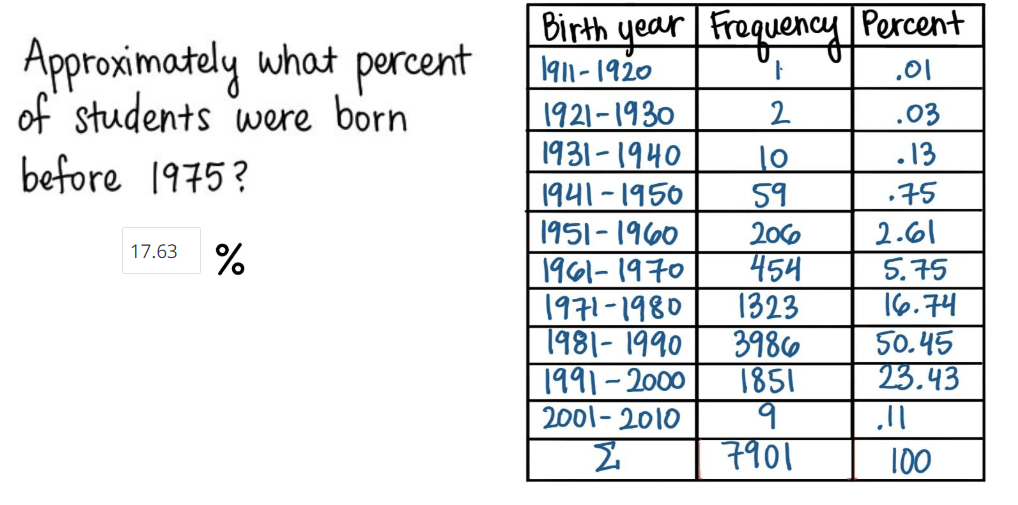 Approximately what percent
of students were born
before 1975?
17.63 %
Birth year Frequency Percent
1911-1920 1 .01
1921-1930 2 .03
1931-1940 10 .13
1941-1950 59 .75
1951-1960 206 2.61
1961-1970 454 5.75
1971-1980 1323 16.74
1981-1990 3986 50.45
1991-2000 1851 23.43
2001-2010 9 .11
Σ 7901 100